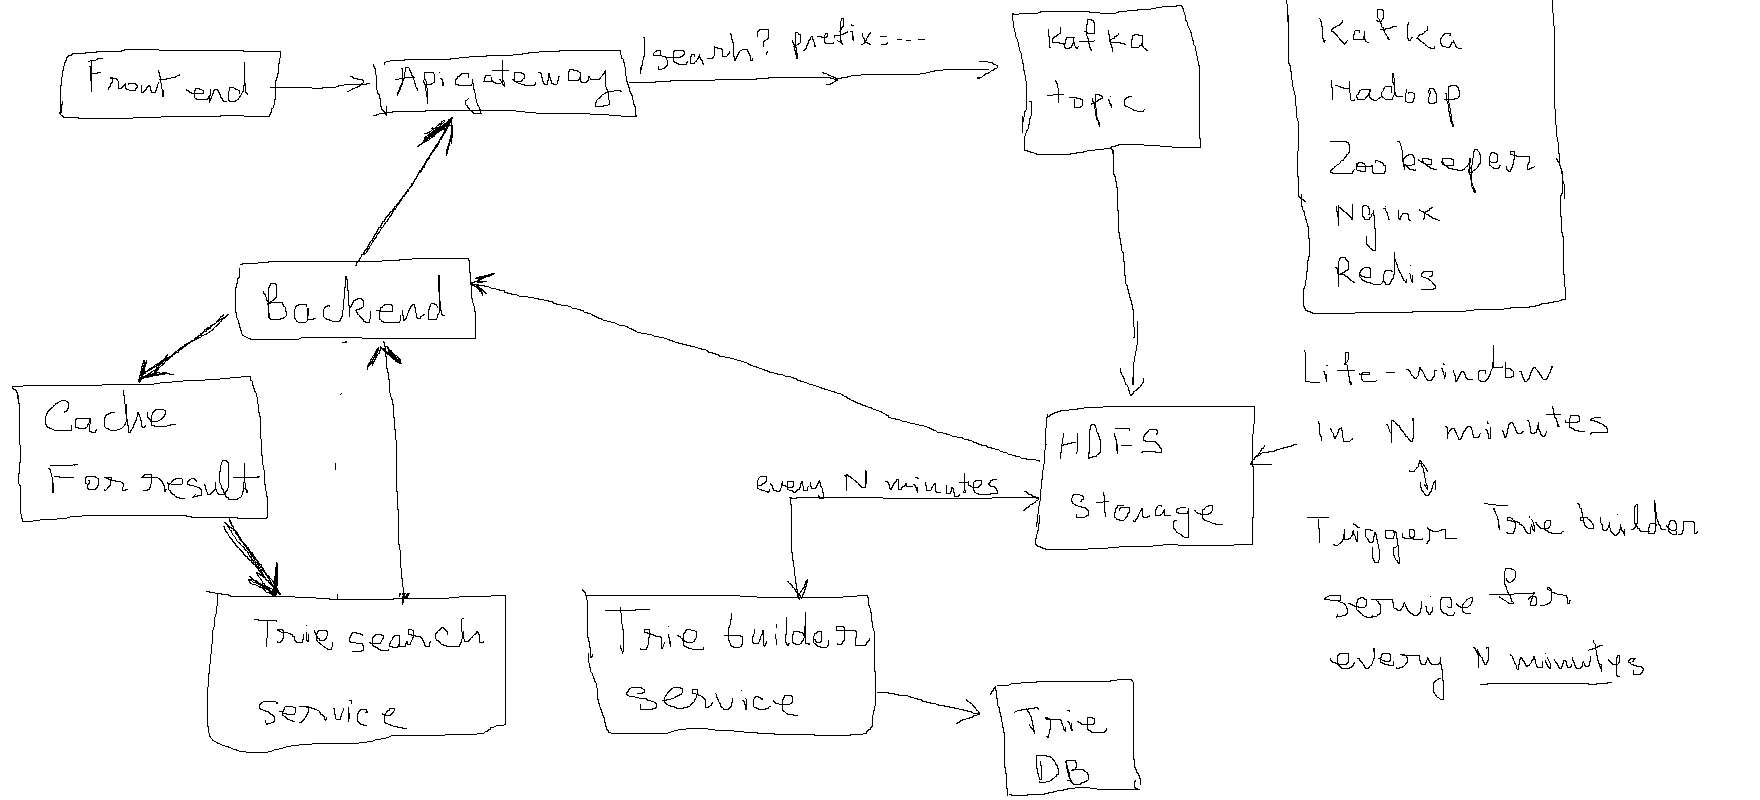 Front end
Api gateway
/search? prefix=---
Kafka
topic
Kafka
Hadoop
Zookeeper
Nginx
Redis
Backend
Cache
For result
HDFS
Storage
every N minutes
Life-window
in N minutes
Trigger Trie builder
service for
every N minutes
Trie search
service
Trie builder
service
Trie
DB